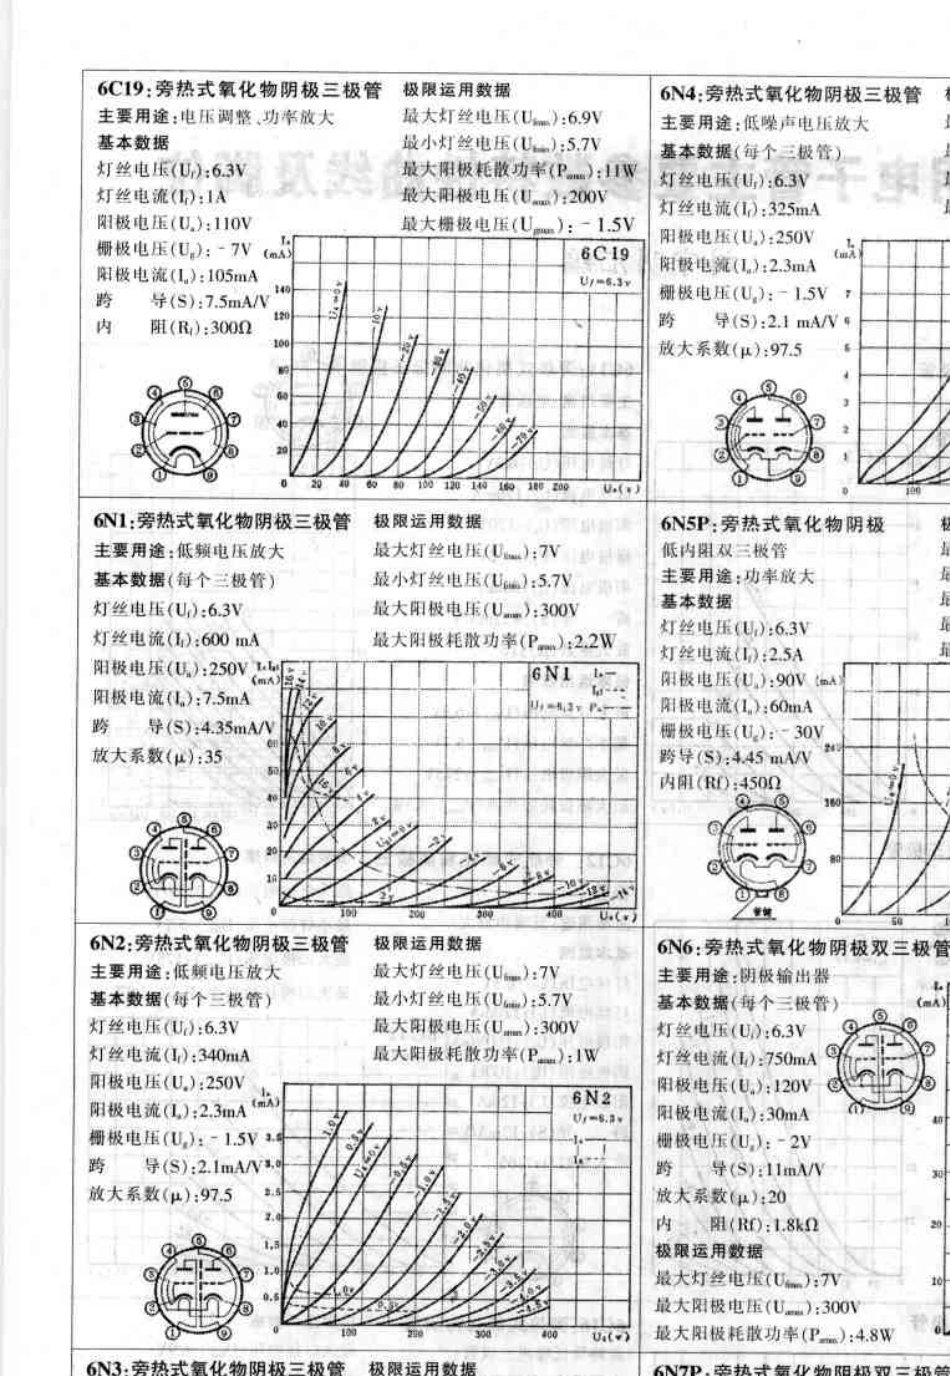 6C19:旁热式氧化物阴极三极管
主要用途:电压调整、功率放大
基本数据
灯丝电压(Uf):6.3V
灯丝电流(If):1A
阳极电压(Ua):110V
栅极电压(Ug):-7V
阳极电流(Ia):105mA
跨 导(S):7.5mA/V
内 阻(Ri):300Ω
极限运用数据
最大灯丝电压(Ufmax):6.9V
最小灯丝电压(Ufmin):5.7V
最大阳极耗散功率(Pamax):11W
最大阳极电压(Uamax):200V
最大栅极电压(Ugmax):-1.5V
Ia
(mA)
6C19
Uf=6.3v
140
120
100
80
60
40
20
Ug=0v
-10v
-20v
-30v
-40v
-50v
-60v
-70v
0 20 40 60 80 100 120 140 160 180 200 Ua(v)
6N4:旁热式氧化物阴极三极管
主要用途:低噪声电压放大
基本数据(每个三极管)
灯丝电压(Uf):6.3V
灯丝电流(If):325mA
阳极电压(Ua):250V
阳极电流(Ia):2.3mA
栅极电压(Ug):-1.5V
跨 导(S):2.1 mA/V
放大系数(μ):97.5
Ia
(mA)
7
6
5
4
3
2
1
0 100
6N1:旁热式氧化物阴极三极管
主要用途:低频电压放大
基本数据(每个三极管)
灯丝电压(Uf):6.3V
灯丝电流(If):600 mA
阳极电压(Ua):250V
阳极电流(Ia):7.5mA
跨 导(S):4.35mA/V
放大系数(μ):35
极限运用数据
最大灯丝电压(Ufmax):7V
最小灯丝电压(Ufmin):5.7V
最大阳极电压(Uamax):300V
最大阳极耗散功率(Pamax):2.2W
(mA)
6N1
Uf=6.3v
60
50
40
30
20
10
0 100 200 300 400 Ua(v)
6N5P:旁热式氧化物阴极
低内阻双三极管
主要用途:功率放大
基本数据
灯丝电压(Uf):6.3V
灯丝电流(If):2.5A
阳极电压(Ua):90V
阳极电流(Ia):60mA
栅极电压(Ug):-30V
跨导(S):4.45 mA/V
内阻(Rf):450Ω
(mA)
240
160
80
0 50
Ug=0v
管键
6N2:旁热式氧化物阴极三极管
主要用途:低频电压放大
基本数据(每个三极管)
灯丝电压(Uf):6.3V
灯丝电流(If):340mA
阳极电压(Ua):250V
阳极电流(Ia):2.3mA
栅极电压(Ug):-1.5V
跨 导(S):2.1mA/V
放大系数(μ):97.5
极限运用数据
最大灯丝电压(Ufmax):7V
最小灯丝电压(Ufmin):5.7V
最大阳极电压(Uamax):300V
最大阳极耗散功率(Pamax):1W
Ia
(mA)
6N2
Uf=6.3v
3.5
3.0
2.5
2.0
1.5
1.0
0.5
0 100 200 300 400 Ua(v)
6N6:旁热式氧化物阴极双三极管
主要用途:阴极输出器
基本数据(每个三极管)
灯丝电压(Uf):6.3V
灯丝电流(If):750mA
阳极电压(Ua):120V
阳极电流(Ia):30mA
栅极电压(Ug):-2V
跨 导(S):11mA/V
放大系数(μ):20
内 阻(Rf):1.8kΩ
极限运用数据
最大灯丝电压(Ufmax):7V
最大阳极电压(Uamax):300V
最大阳极耗散功率(Pamax):4.8W
Ia
(mA)
40
30
20
10
0
6N3:旁热式氧化物阴极三极管 极限运用数据
6N7P:旁热式氧化物阴极双三极管